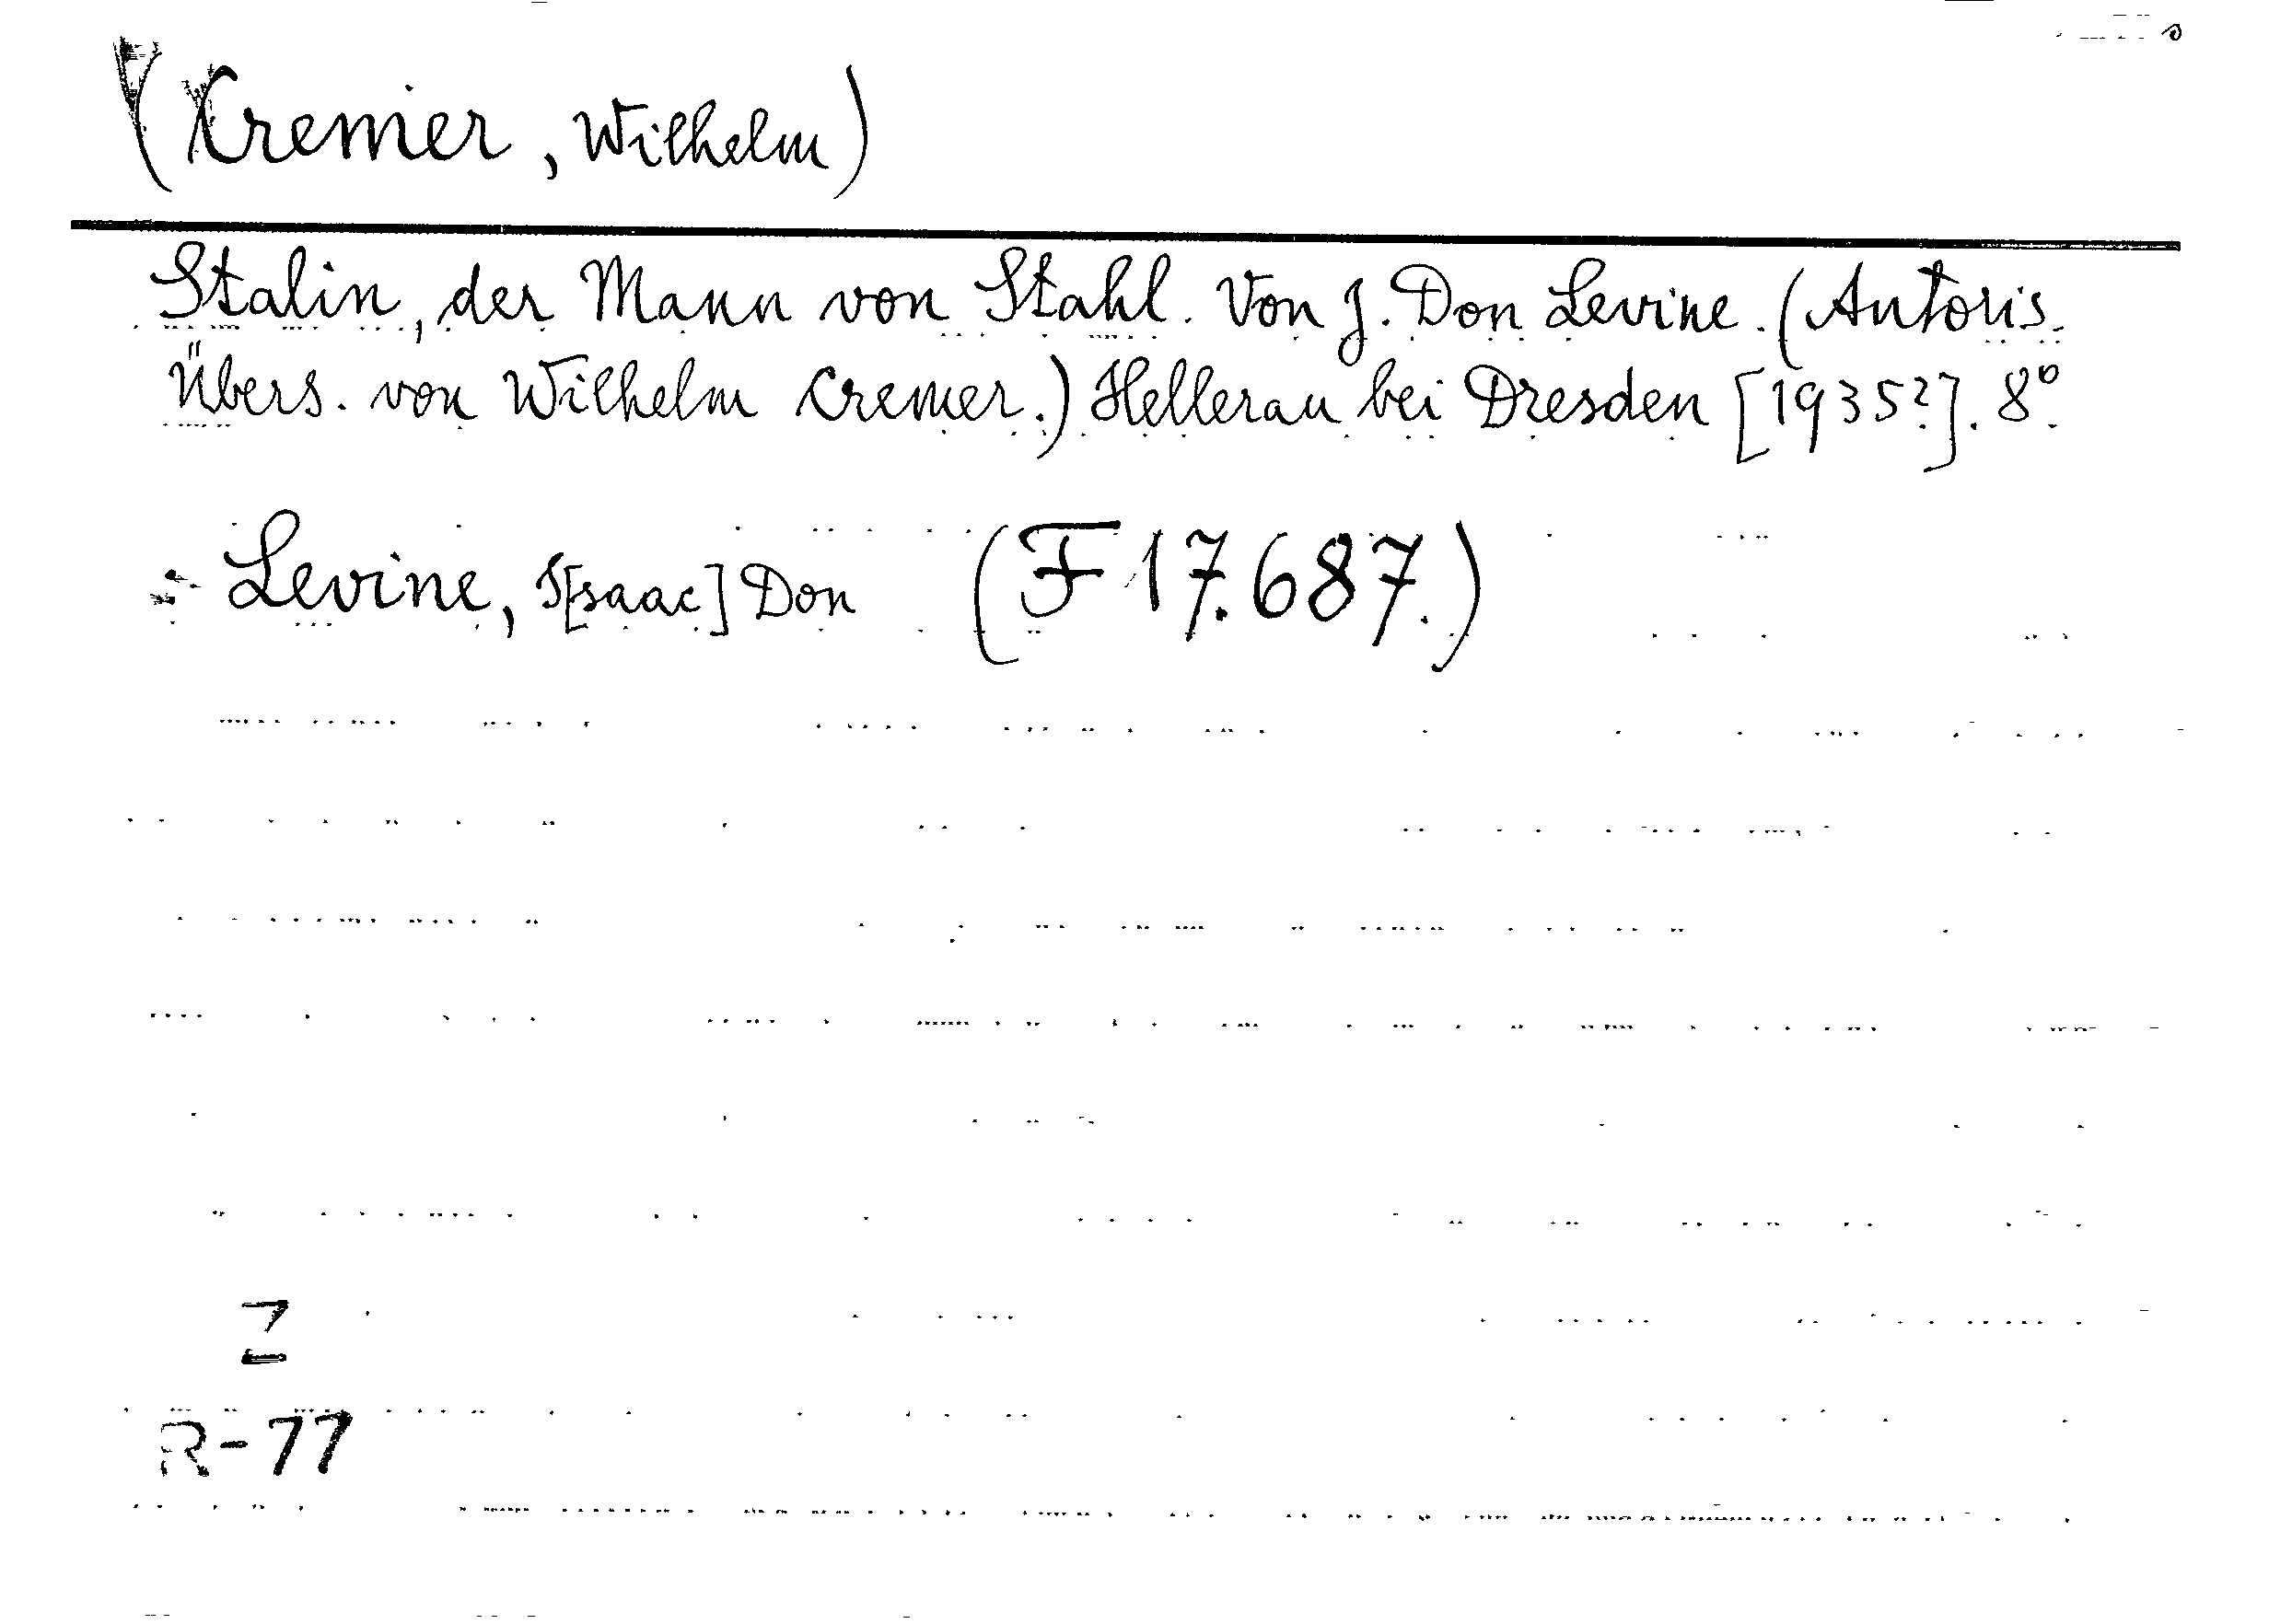 (Cremer, Wilhelm)
Stalin, der Mann von Stahl. Von J. Don Levine. (Autoris.
Übers. von Wilhelm Cremer.) Hellerau bei Dresden [1935?]. 8°.
:- Levine, I[saac] Don (F 17.687.)
Z
R-77